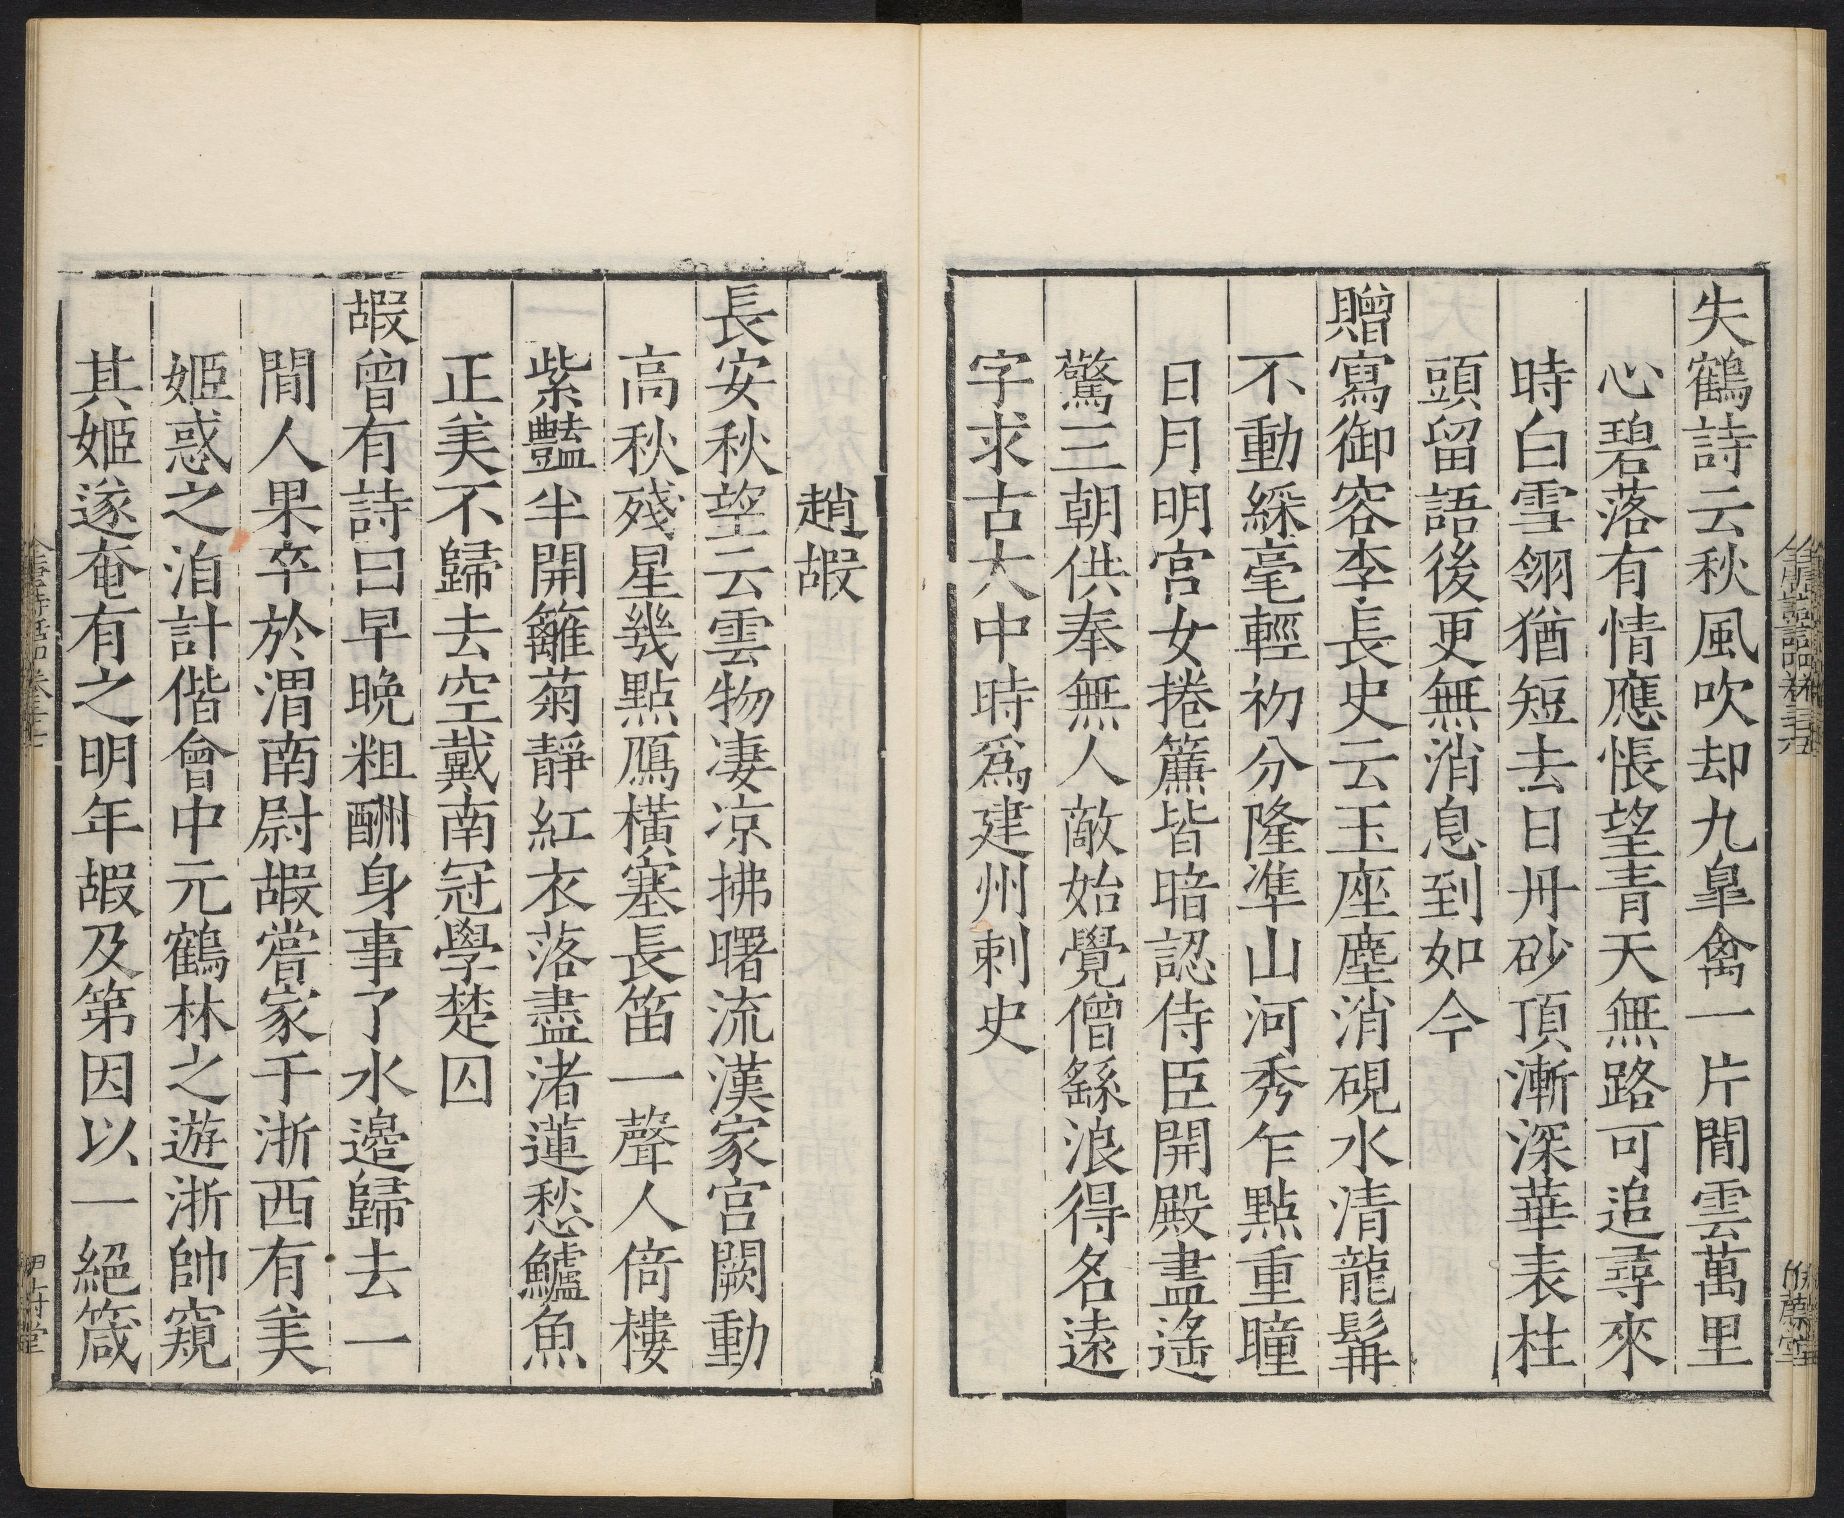 失鶴詩云秋風吹却九臯禽一片閒雲萬里
心碧落有情應悵望青天無路可追尋來
時白雪翎猶短去日丹砂頂漸深華表柱
頭留語後更無消息到如今
贈寫御容李長史云玉座塵消硯水清龍髯
不動綵毫輕初分隆準山河秀乍點重瞳
日月明宮女捲簾皆暗認侍臣開殿盡遙
驚三朝供奉無人敵始覺僧繇浪得名遠
字求古大中時爲建州刺史
趙嘏
長安秋望云雲物凄凉拂曙流漢家宮闕動
高秋殘星幾點鴈橫塞長笛一聲人倚樓
紫豔半開籬菊靜紅衣落盡渚蓮愁鱸魚
正美不歸去空戴南冠學楚囚
嘏曾有詩曰早晚粗酬身事了水邊歸去一
閒人果卒於渭南尉嘏嘗家于浙西有美
姬惑之洎計偕會中元鶴林之遊浙帥窺
其姬遂奄有之明年嘏及第因以一絕箴